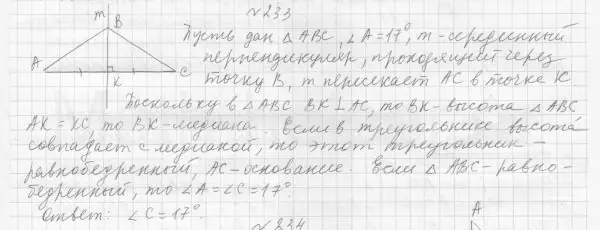 №233
m B
Пусть дан △ABC, ∠A=17°, m - серединный
перпендикуляр, проходящий через
A K C точку B, m пересекает AC в точке K
Поскольку в △ABC BK⊥AC, то BK-высота △ABC
AK = KC, то BK-медиана. Если в треугольнике высота
совпадает с медианой, то этот треугольник -
равнобедренный, AC-основание. Если △ABC-равно-
бедренный, то ∠A=∠C=17°.
Ответ: ∠C=17°.
№234
A